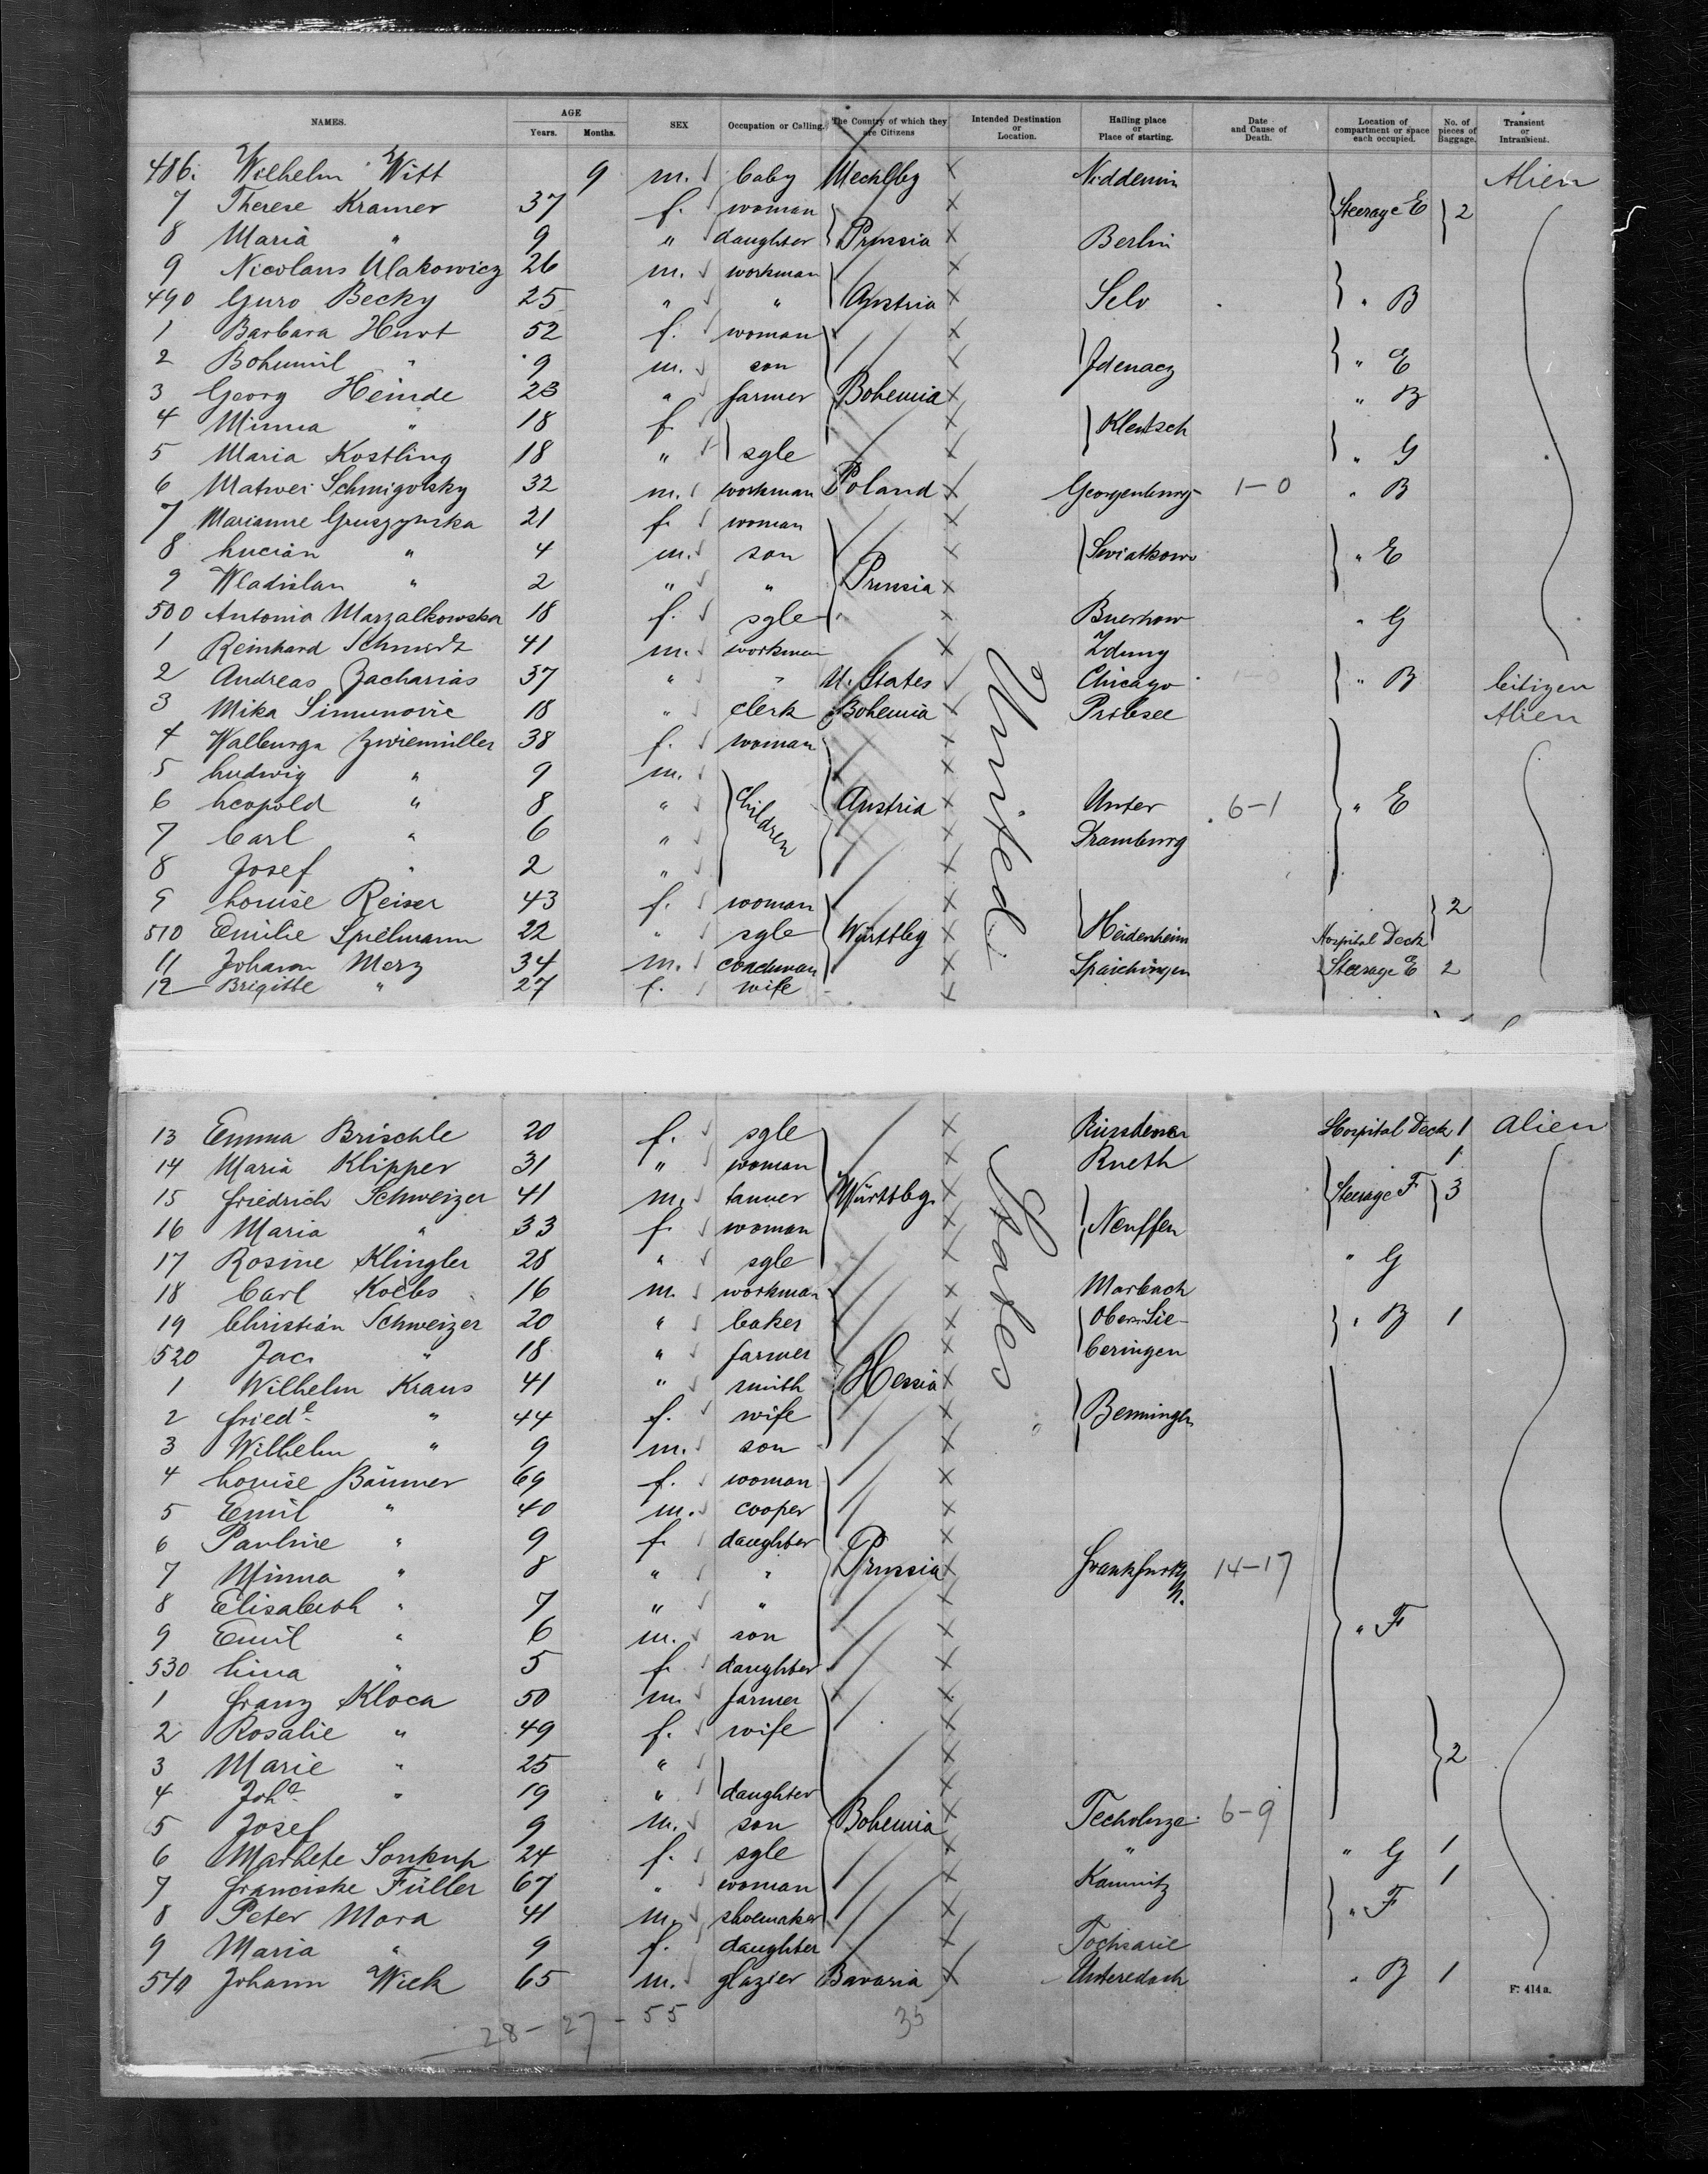 NAMES. AGE Years. Months. SEX Occupation or Calling. The Country of which they are Citizens Intended Destination or Location. Hailing place or Place of starting. Date and Cause of Death. Location of compartment or space each occupied. No. of pieces of Baggage. Transient or Intransient.
486. Wilhelm Witt 9 m. baby Mecklbg Neddemin Alien
7 Therese Kramer 37 f. woman Steerage E 2
8 Maria " 9 " daughter Prussia Berlin
9 Nicolaus Ulakowicz 26 m. workman
490 Guro Becky 25 " " Austria Selo " B
1 Barbara Hurt 52 f. woman
2 Bohumil " 9 m. son " E
3 Georg Heinde 23 " farmer Bohemia " B
4 Minna " 18 f. Klentsch
5 Maria Kostling 18 " sgle " G
6 Matwei Schmigolsky 32 m. workman Poland Georgenburg 1-0 " B
7 Marianne Gruszynska 21 f. woman
8 Lucian " 4 m. son " E
9 Wladislau " 2 " " Prussia
500 Antonia Marzalkowska 18 f. sgle " G
1 Reinhard Schmidt 41 m. workman Zduny
2 Andreas Zacharias 37 " " U. States Chicago " B Citizen
3 Mika Simunovic 18 " clerk Bohemia Alien
4 Walburga Zwiemüller 38 f. woman
5 Ludwig " 9 m.
6 Leopold " 8 " Children Austria Unter 6-1 " E
7 Carl " 6 " Dramburg
8 Josef " 2 "
9 Louise Reiser 43 f. woman 2
510 Emilie Spielmann 22 " sgle Württbg Heidenheim Hospital Deck
11 Johann Merz 34 m. coachman Spaichingen Steerage E 2
12 Brigitte " 27 f. wife
United
13 Emma Brischle 20 f. sgle Hospital Deck 1 Alien
14 Maria Klipper 31 " woman Rueth 1
15 Friedrich Schweizer 41 m. tanner Württbg. Steerage F 3
16 Maria " 33 f. woman Neuffen
17 Rosine Klingler 28 " sgle " G
18 Carl Koebs 16 m. workman Marbach
19 Christian Schweizer 20 " baker " B 1
520 Jac. " 18 " farmer
1 Wilhelm Kraus 41 " smith Hessia
2 Friede " 44 f. wife Benningen
3 Wilhelm " 9 m. son
4 Louise Bäumer 69 f. woman
5 Emil " 40 m. cooper
6 Pauline " 9 f. daughter
7 Minna " 8 " " Prussia 14-17
8 Elisabeth " 7 " "
9 Emil " 6 m. son " F
530 Lina " 5 f. daughter
1 Franz Kloca 50 m. farmer
2 Rosalie " 49 f. wife
3 Marie " 25 " 2
4 Johe " 19 " daughter
5 Josef 9 m. son Bohemia 6-9
6 Markete Soukup 24 f. sgle " " G 1
7 Franciske Füller 67 " woman Kamnitz 1
8 Peter Mora 41 m. shoemaker " F
9 Maria " 9 f. daughter
540 Johann Wick 65 m. glazier Bavaria " B 1
States
F. 414a.
28-27-55 35